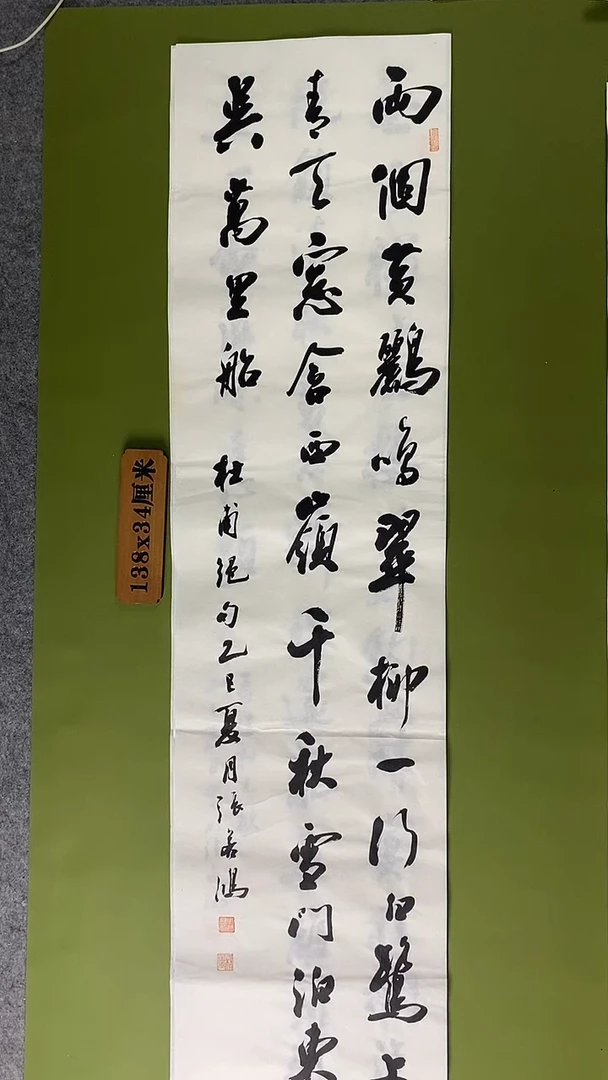 兩個黃鸝鳴翠柳一行白鷺上
青天窗含西嶺千秋雪門泊東
吳萬里船
杜甫絕句乙巳夏月張若鴻
138x34厘米